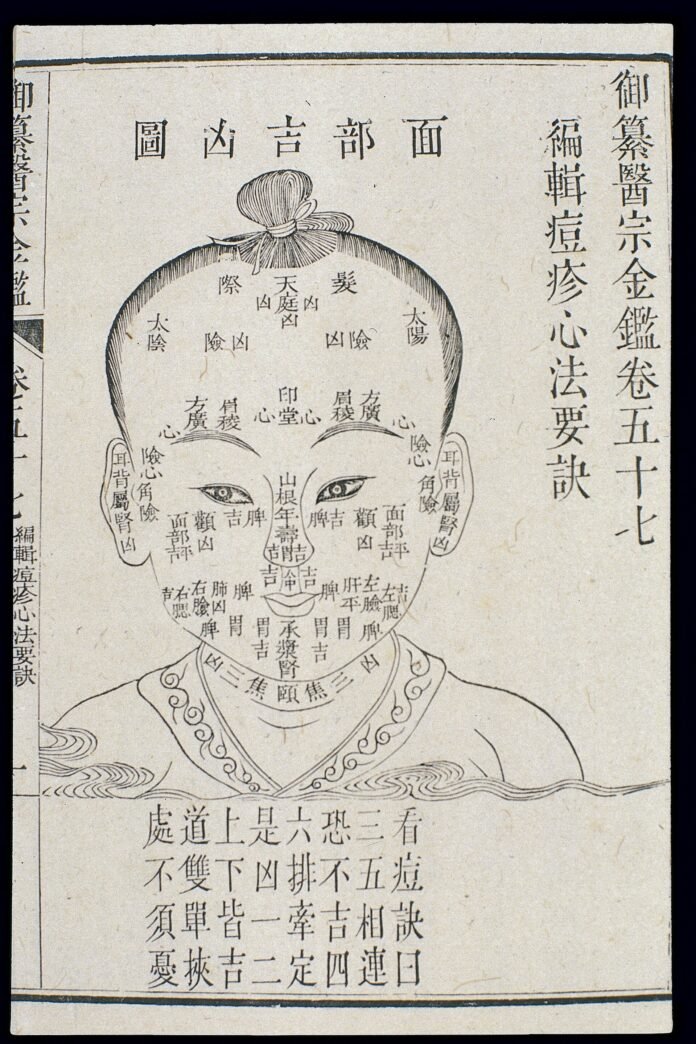 御纂醫宗金鑑卷五十七
編輯痘疹心法要訣
面部吉凶圖
髮際
天庭凶
凶
凶
太陽
太陰
險凶
凶險
印堂
心
心
方廣
眉稜
眉稜
方廣
心
心
險心
險心
角險
角險
耳背屬腎凶
耳背屬腎凶
山根年壽
吉脾
脾吉
顴凶
顴凶
面部平吉
面部平吉
吉
吉
人中
吉
吉
脾
脾
肺凶
肝平
右臉
左臉
右腮
左腮
吉
吉
脾
脾
胃
胃
胃吉
胃吉
承漿腎
頤
凶三焦
焦三凶
看痘訣曰
三五相連
恐不吉四
六排牽定
是凶一二
上下皆吉
道雙單挾
處不須憂
御纂醫宗金鑑
卷五十七
編輯痘疹心法要訣
一